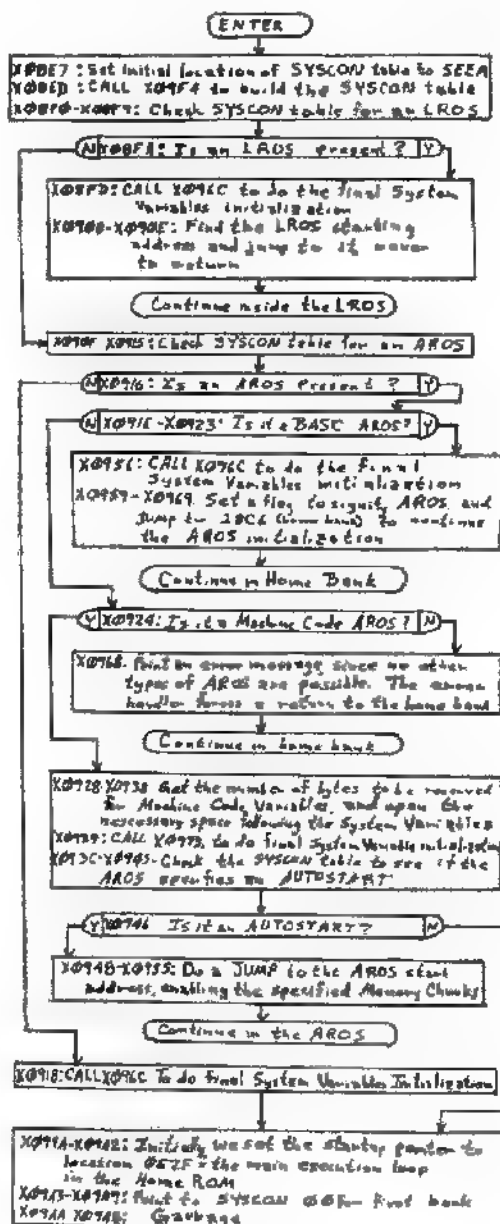 ENTER
X08E7: Set initial location of SYSCON table to SEEA
CALL X09F4 to build the SYSCON table
Check SYSCON table for an LROS
N X08FA: Is an LROS present? Y
X08FD: CALL X096C to do the final System
Variables initialization
X0900-X090E: Find the LROS starting
address and jump to it never
to return
Continue inside the LROS
X090F X0915: Check SYSCON table for an AROS
N X0916: Is an AROS Present? Y
N X091E-X0923: Is it a BASIC AROS? Y
X0956: CALL X096C to do the final
System Variables initialization
X0959-X0969. Set a flag to signify AROS, and
Jump to (home bank) to continue
the AROS initialization
Continue in Home Bank
Y X0924: Is it a Machine Code AROS? N
Print an error message since no other
types of AROS are possible. The error
handler forces a return to the home bank
Continue in home bank
X0928-X0938 Get the number of bytes to be reserved
for Machine Code Variables, and open the
necessary space following the System Variables
X0939: CALL X0973, to do final System Variable initialization
X093C-X0945-Check the SYSCON table to see if the
AROS specifies an AUTOSTART
Y X0946 Is it an AUTOSTART? N
X0948-X0955: Do a JUMP to the AROS start
address, enabling the specified Memory Chunks
Continue in the AROS
X0918: CALL X096C To do final System Variables Initialization
Initially we set the startup pointer to
location the main execution loop
in the Home ROM
Point to SYSCON for first bank
Garbage